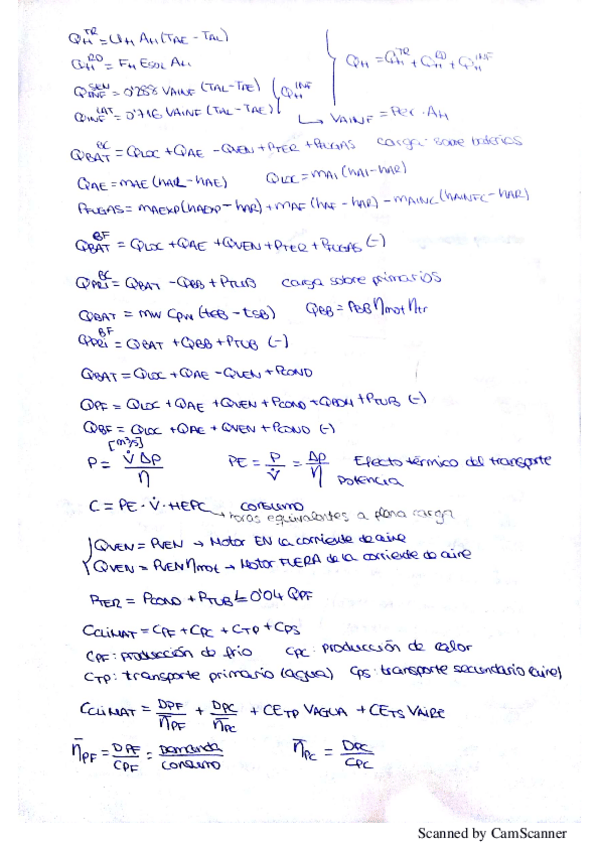 Q_H^TR = U_H A_H (TAE - TAL)
Q_H^RD = F_H ESOL A_H
Q_H = Q_H^TR + Q_H^RD + Q_H^INF
Q_INF^SEN = 0'288 VAINF (TAL - TAE)
Q_INF^LAT = 0'716 VAINF (TAL - TAE)
Q_H^INF
↳ VAINF = Per · A_H
Q_BAT^BC = QLOC + QAE - QVEN + PTER + PFUGAS carga sobre baterías
QAE = MAE (hAR - hAE) QLOC = MAI (hAI - hAR)
PFUGAS = MAEXP (hAEXP - hAR) + MAF (hAF - hAR) - MAINC (hAINFC - hAR)
Q_BAT^BF = QLOC + QAE + QVEN + PTER + PFUGAS (-)
Q_PRI^BC = QBAT - QBB + PTUB carga sobre primarios
QBAT = mw Cpw (tEB - tSB) QBB = PBB ηmot ηtr
Q_PRI^BF = QBAT + QBB + PTUB (-)
QBAT = QLOC + QAE - QVEN + PCOND
QPF = QLOC + QAE + QVEN + PCOND + QBOM + PTUB (-)
QBF = QLOC + QAE + QVEN + PCOND (-)
[m³/s]
P = V̇ Δp / η PE = P / V̇ = Δp / η Efecto térmico del transporte
Potencia
C = PE · V̇ · HEPC consumo
→ horas equivalentes a plena carga
QVEN = PVEN → Motor EN la corriente de aire
QVEN = PVEN ηmot → Motor FUERA de la corriente de aire
PTER = PCOND + PTUB ≤ 0'04 QPF
CCLIMAT = CPF + CPC + CTP + CPS
CPF: producción de frío CPC: producción de calor
CTP: transporte primario (agua) CPS: transporte secundario (aire)
CCLIMAT = DPF / η̄PF + DPC / η̄PC + CETP VAGUA + CETS VAIRE
η̄PF = DPF / CPF = Demanda / Consumo η̄PC = DPC / CPC
Scanned by CamScanner